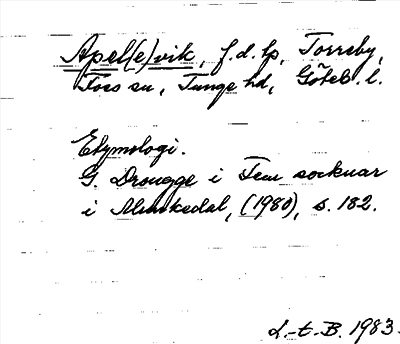 Apel(e)vik, f.d. lp, Torreby,
Foss sn, Tunge hd, Göteb. l.
Etymologi.
G. Drougge i Fem socknar
i Munkedal, (1980), s. 182.
L.-t.-B. 1983.